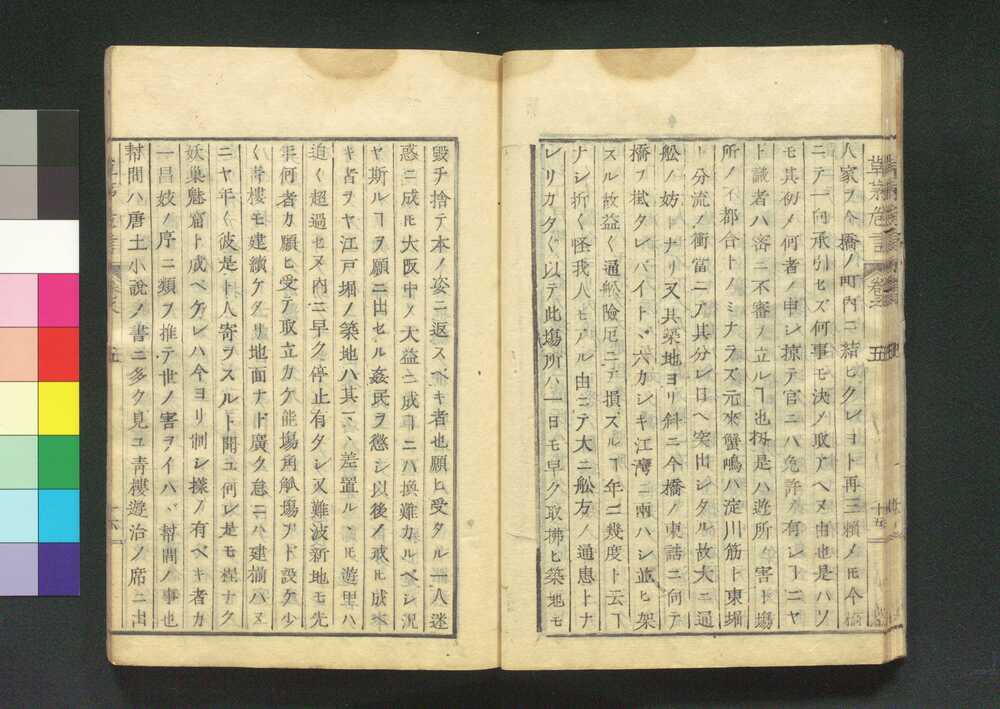 人家ヲ今橋ノ町内ニ結ヒクレヨト再三頼メ𪜈今橋
ニテ一向承引セズ何事モ決メ取アヘヌ由也是ハソ
モ其例メ何者ノ申シ掠テ官ニハ免許ノ有シヿニヤ
ト識者ハ落ニ不審ヲ立ルヿ也扨是ハ遊所ノ害ト塲
所ノ不都合トノミナラズ元來蟹嶋ハ淀川筋ト東堀
ト分流ノ衝當ニテ其分レ口ヘ突出シタル故大ニ通
舩ノ妨トナリ又其築地ヨリ斜ニ今橋ノ東詰ニ向テ
橋ヲ掛タレバイトヾ六カシキ江灣ニ兩ハシ並ヒ架
スル故益〱通舩險厄ニテ損スルヿ年ニ幾度ト云ヿ
ナシ折〱怪我人モアル由ニテ大ニ舩方ノ通患トナ
レリカタ〱以テ此塲所ハ一日モ早ク取拂ヒ築地モ
毀チ捨テ本ノ姿ニ返スベキ者也願ヒ受タル一人迷
惑ニ成𪜈大阪中ノ大益ニ成ヿニハ換難カルベシ況
ヤ斯ルヿヲ願ニ出セル姦民ヲ懲シ以後ノ戒𪜈成ベ
キ者ヲヤ江戸堀ノ築地ハ其マヽ差置ル、𪜈遊里ハ
追〱超過セヌ内ニ早ク停止有タシ又難波新地モ先
年何者カ願ヒ受テ取立カケ能塲角觝塲ナド設ケ少
〱青樓モ建續ケタリ地面ナド廣ク急ニハ建揃ハヌ
ニヤ年〱彼是ト人寄ヲスルト聞ユ何レ是モ程ナク
妖巣魅窟ト成ベケレハ今ヨリ制シ樣ノ有ベキ者カ
一昌妓ノ序ニ類ヲ推テ世ノ害ヲイハヾ幇間ノ事也
幇間ハ唐土小說ノ書ニ多ク見ユ青樓遊冶ノ席ニ出
草茅危言
卷之
五
十五